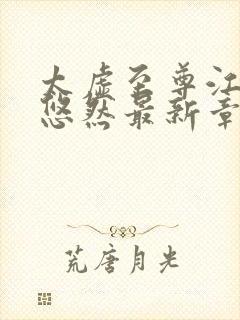 太虚至尊江
悠然最新章
荒唐月光